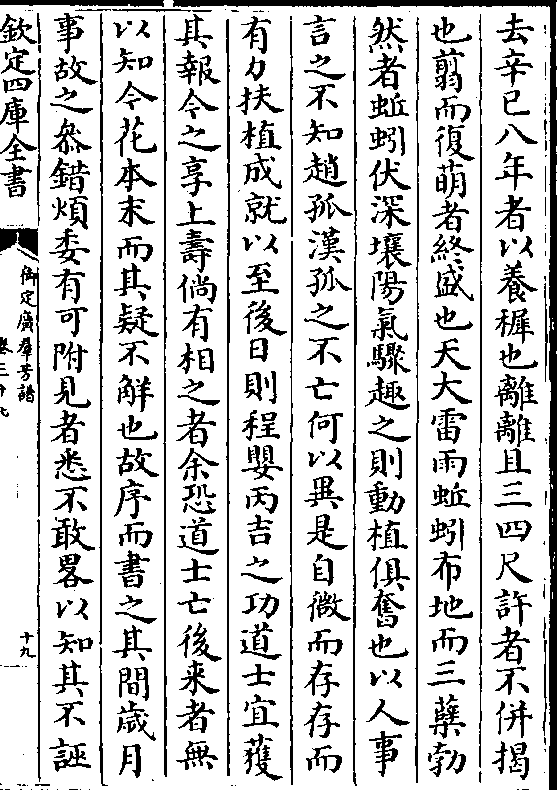 去辛已八年者以養穉也離離且三四尺許者不併揭
也翦而復萌者終盛也天大雷雨蚯蚓布地而三蘖勃
然者蚯蚓伏深壤陽氣驟趣之則動植俱奮也以人事
言之不知趙孤漢孤之不亡何以異是自微而存存而
有力扶植成就以至後日則程嬰丙吉之功道士宜獲
其報令之享上壽倘有相之者余恐道士亡後来者無
以知今花本末而其疑不解也故序而書之其間歳月
事故之叅錯煩委有可附見者悉不敢畧以知其不誣
欽定四庫全書
御定廣羣芳譜
卷三十九
十九